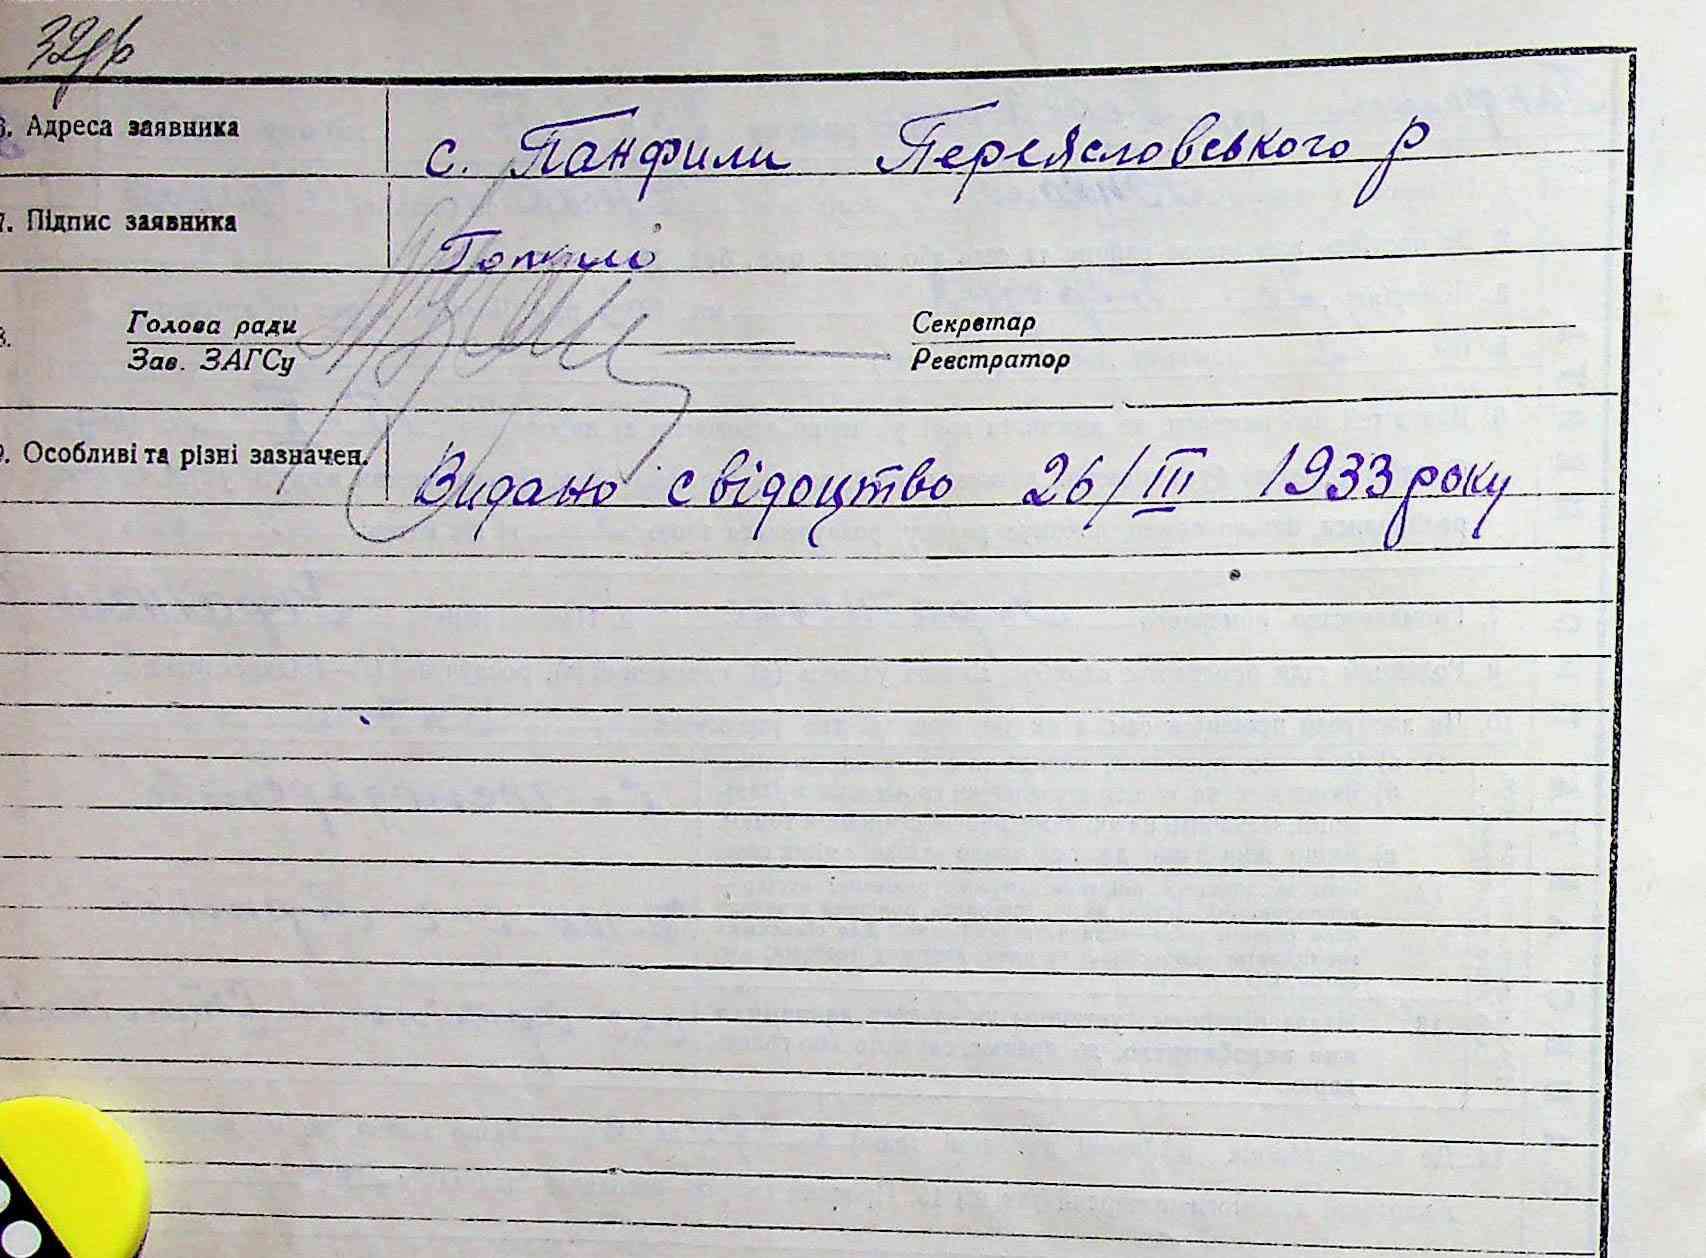 32
6. Адреса заявника с. Панфили Переясловського р
7. Підпис заявника
8. Голова ради Секретар
Зав. ЗАГСу Реєстратор
9. Особливі та різні зазначен. Видано свідоцтво 26/III 1933 року